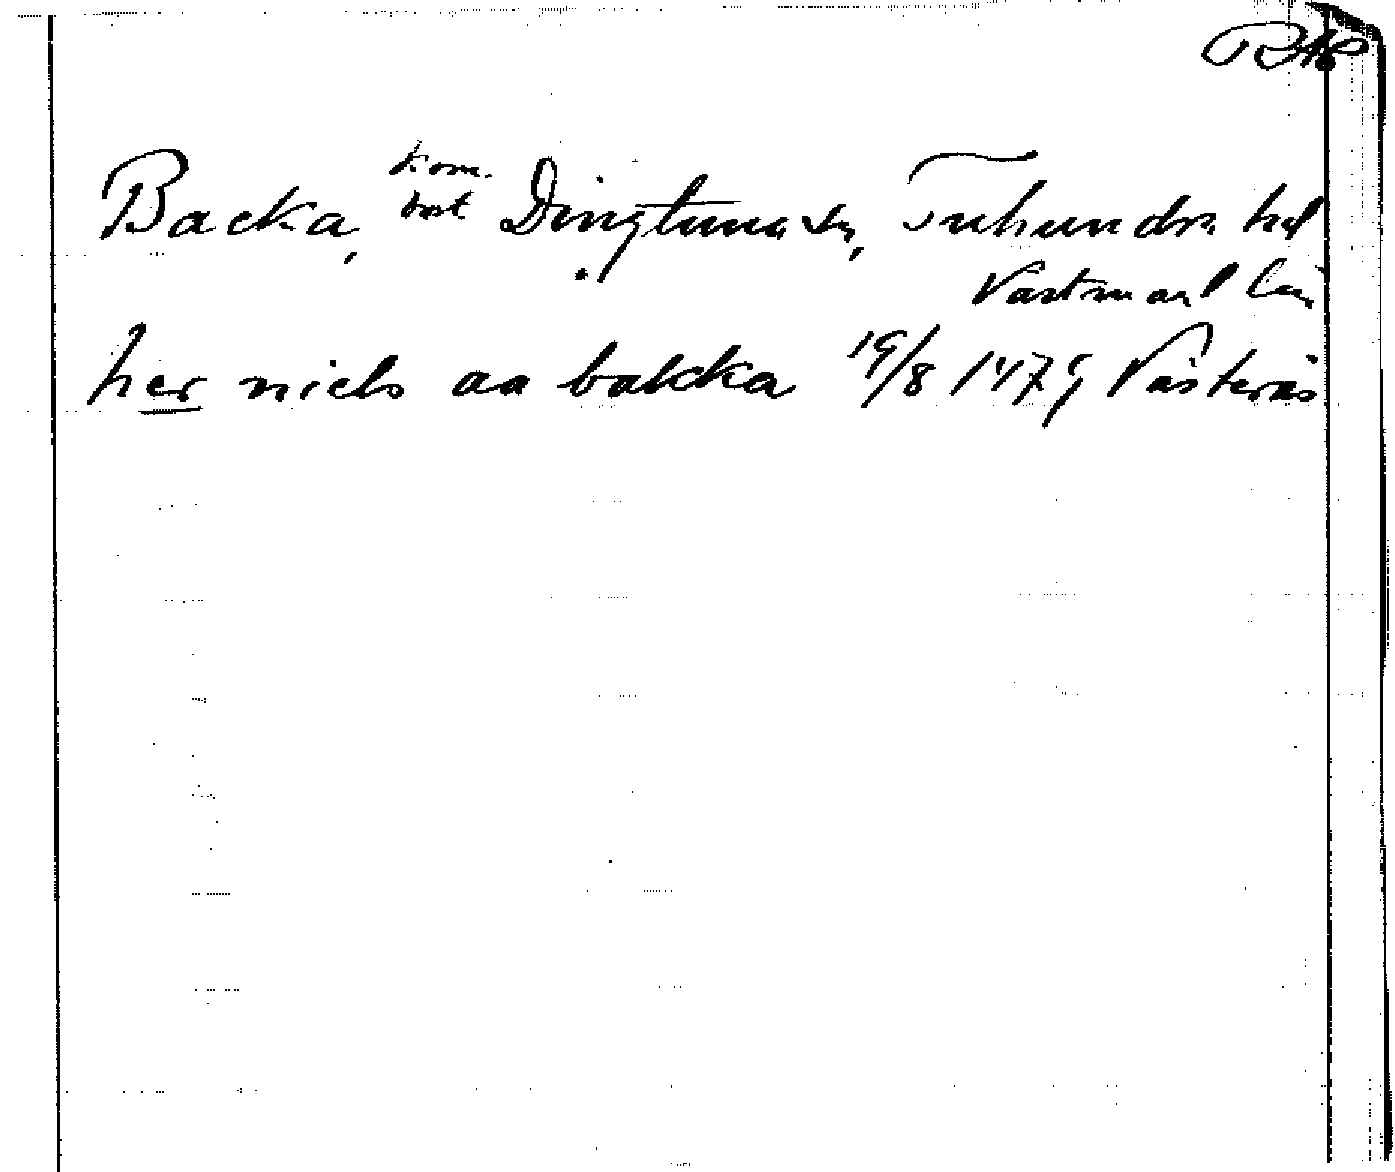 RAP
Backa, kom. bost Dingtuna sn, Tuhundra hd
Västmanl län
her niels aa bakka 19/8 1479 Västerås